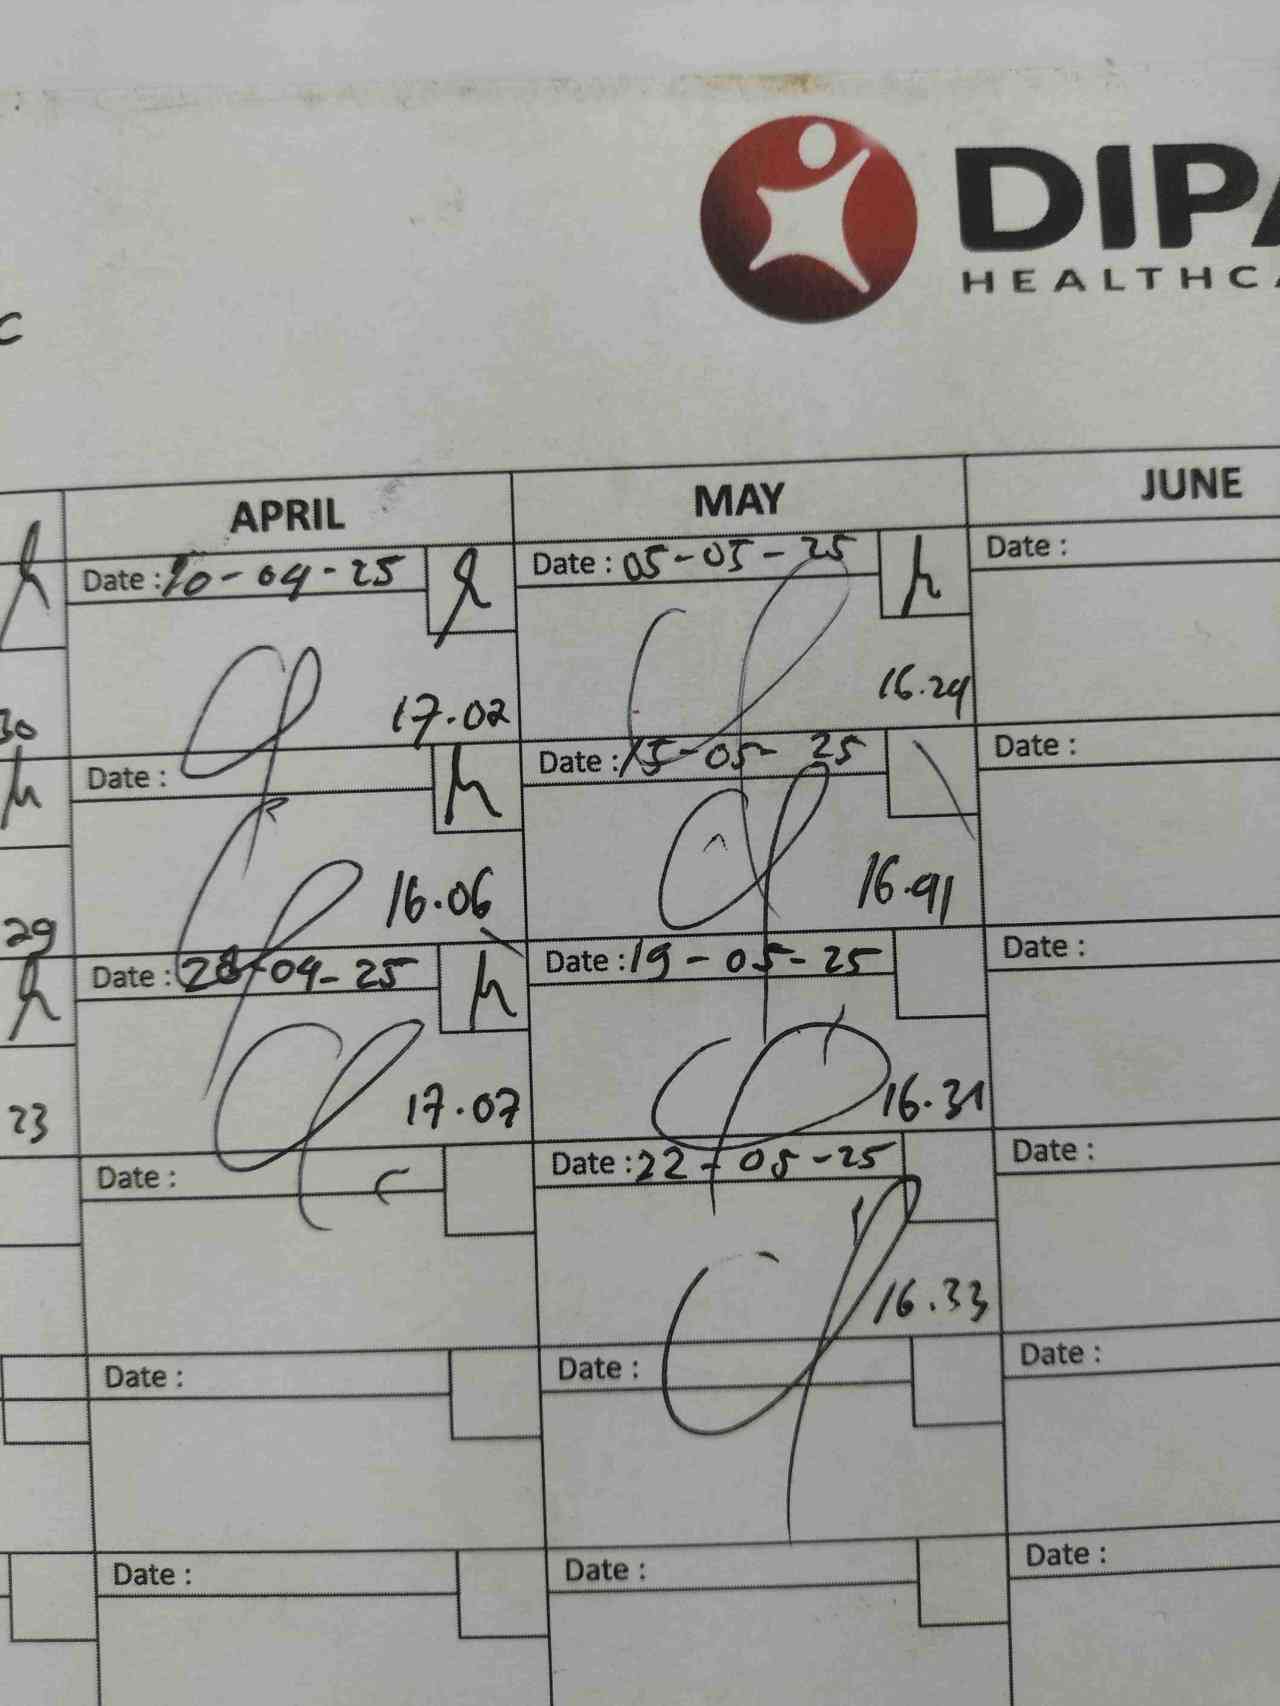 DIPA
HEALTHCA
C
APRIL MAY JUNE
Date : 10-04-25 Date : 05-05-25 Date :
30 17.02 16.24
Date : Date : 15-05-25 Date :
29 16.06 16.91
Date : 28-04-25 Date : 19-05-25 Date :
23 17.07 16.31
Date : Date : 22-05-25 Date :
16.33
Date : Date : Date :
Date : Date : Date :